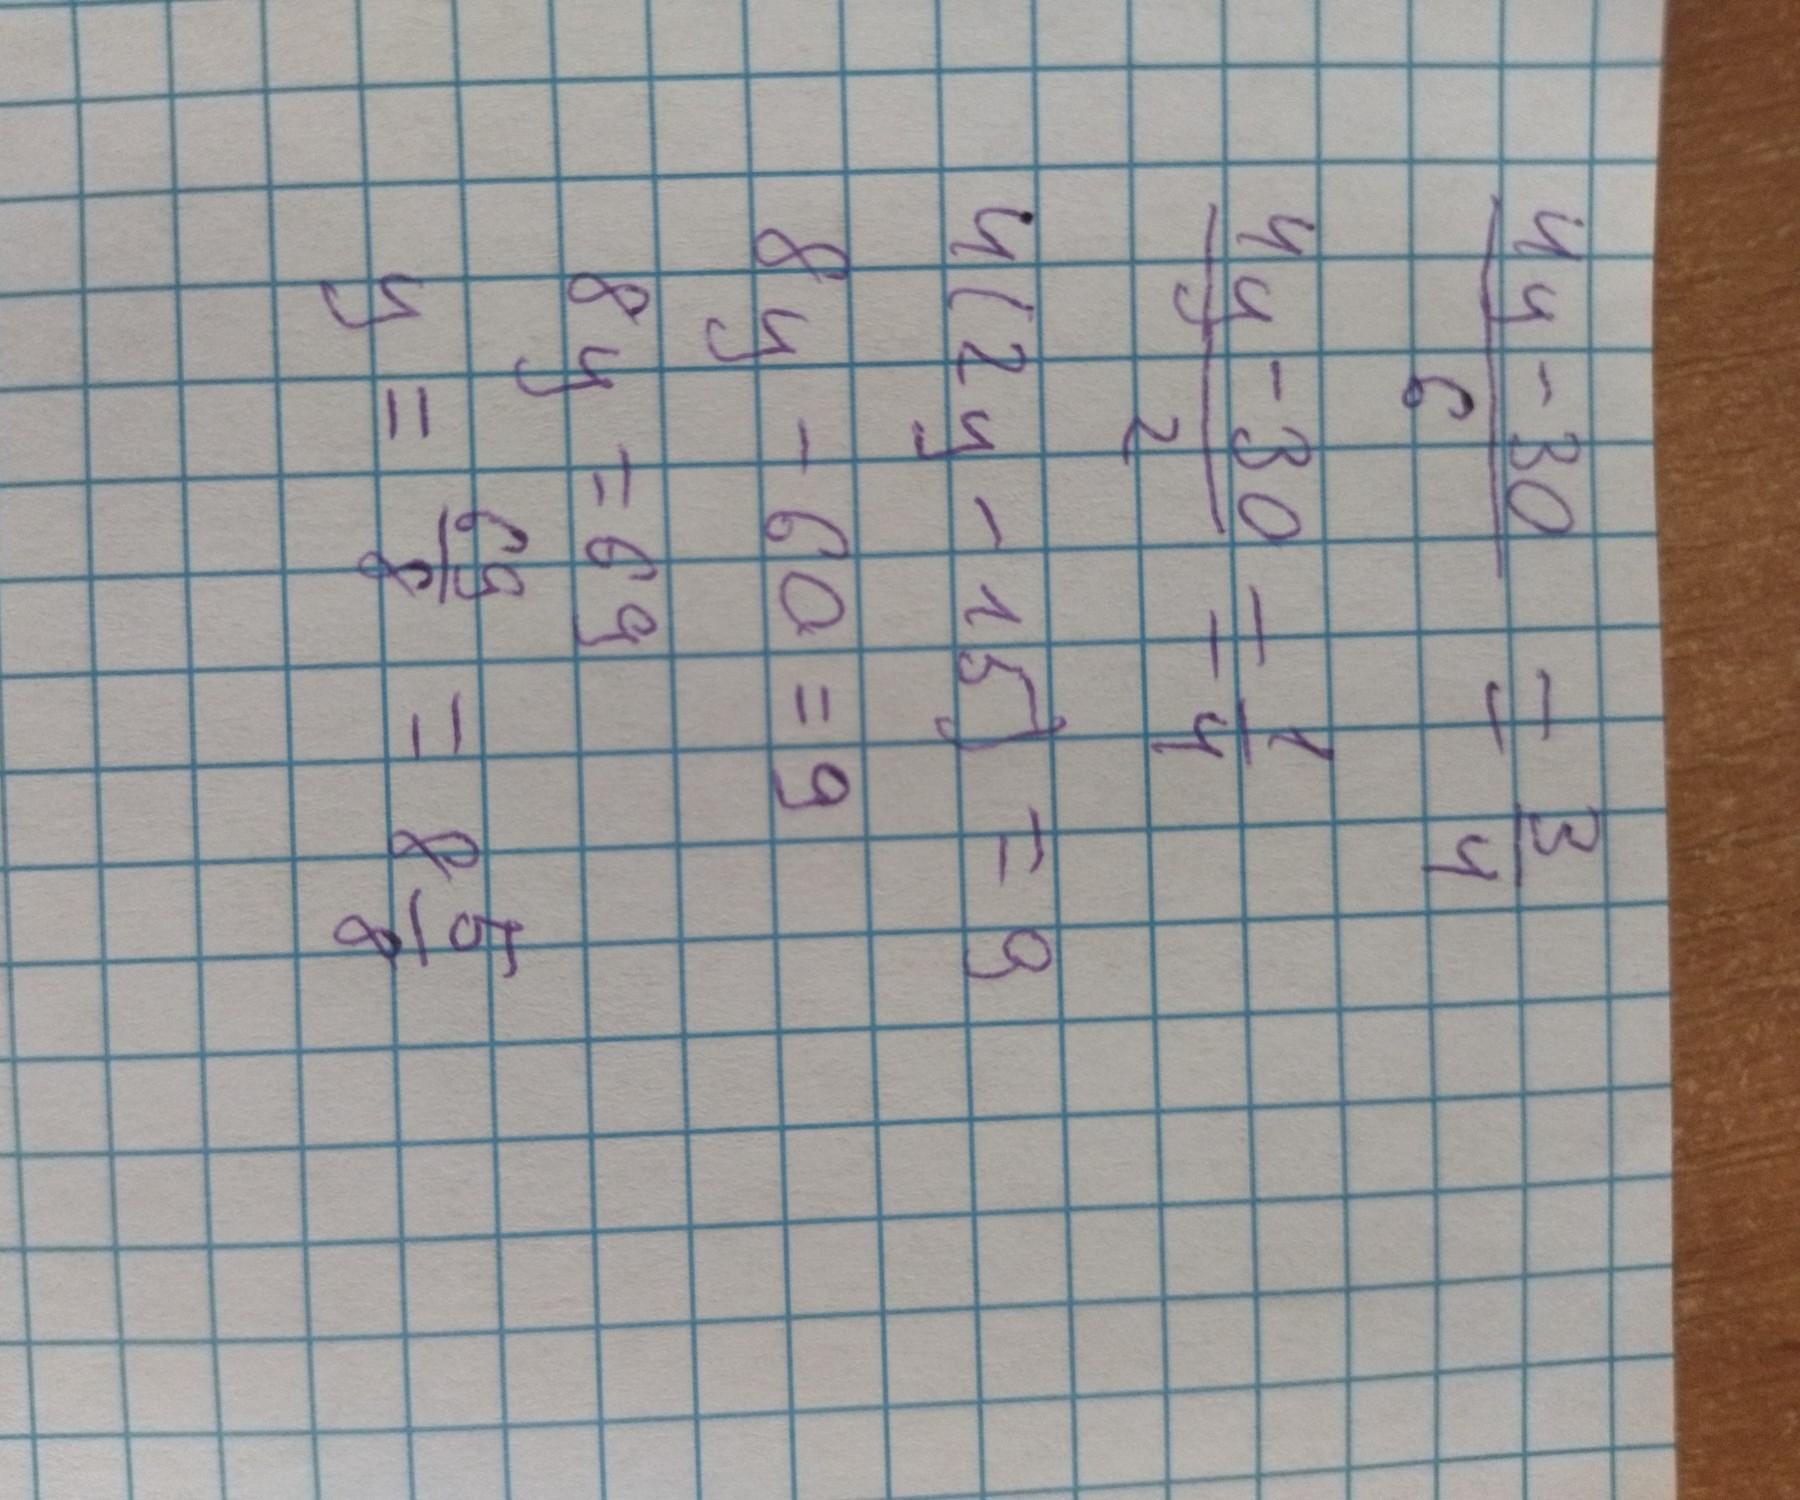 4y-30/6 = 3/4
4y-30/2 = 1/4
4(2y-15) = 9
8y-60=9
8y=69
y = 69/8 = 8 5/8